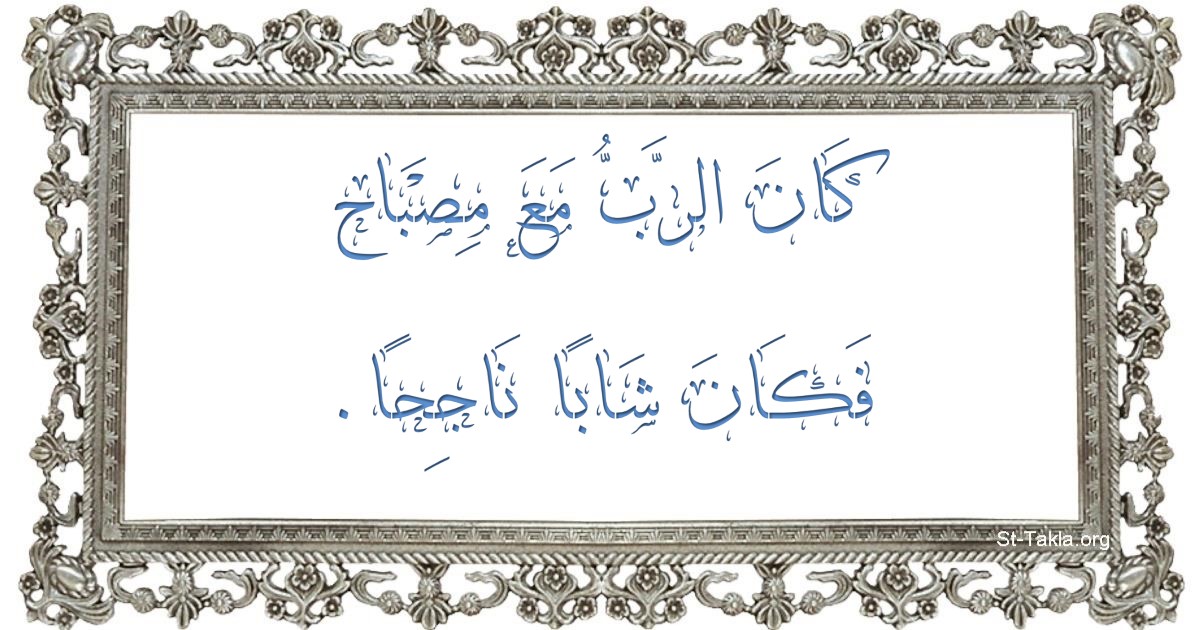 كَانَ الرَّبُّ مَعَ مِصْبَاح
فَكَانَ شَابًا نَاجِحًا .
St-Takla.org